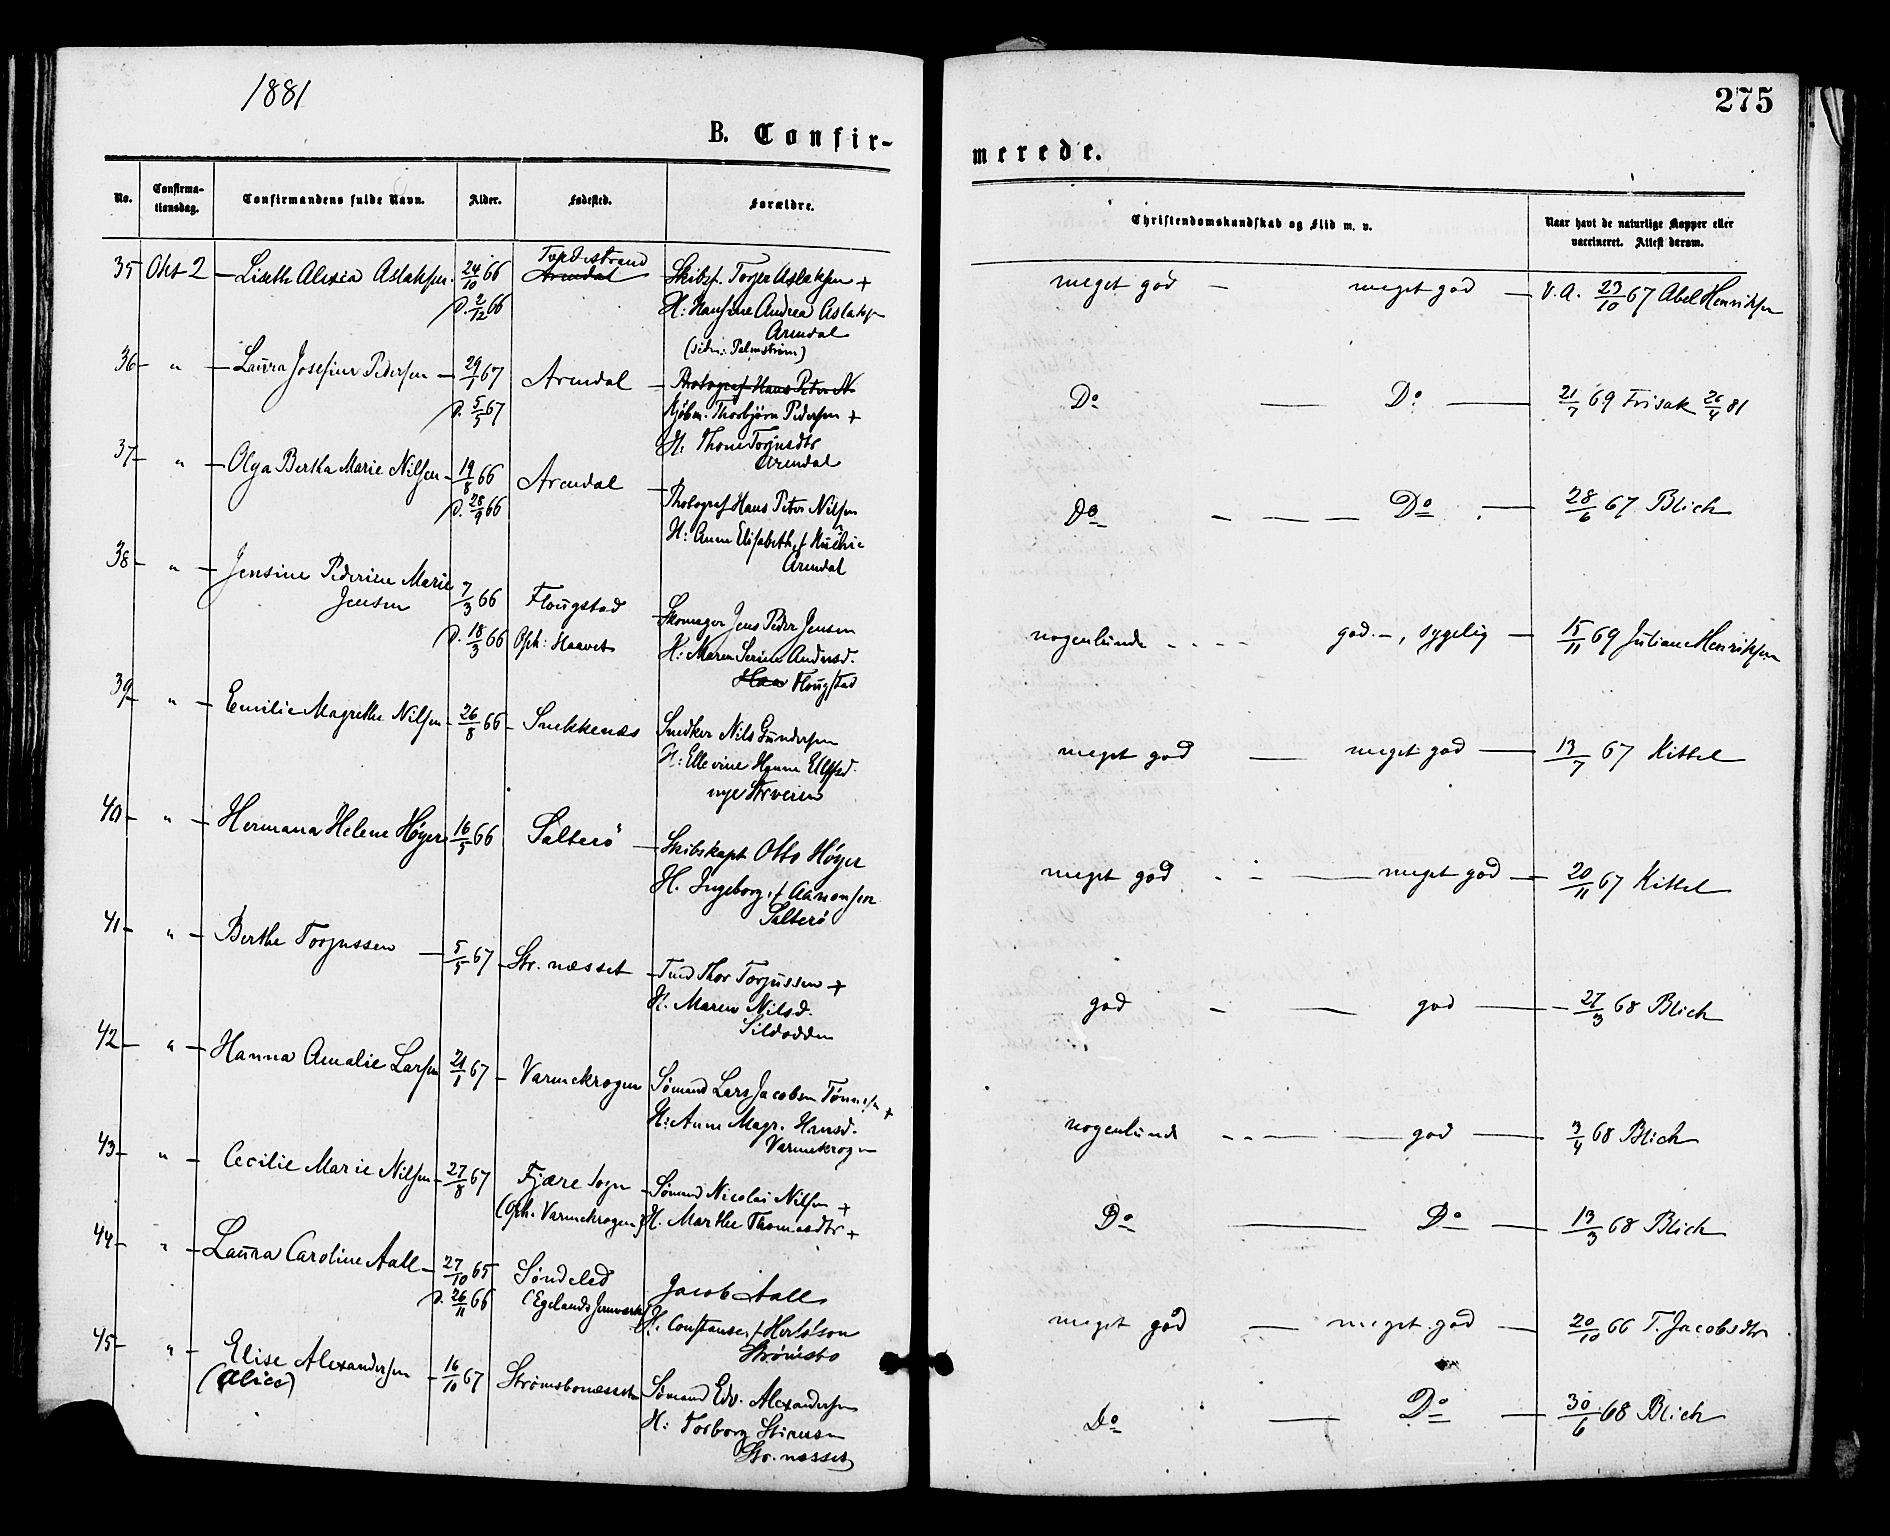 1881
275
B. Confir-
merede.
No.
Confirma-
tionsdag.
Confirmandens fulde Navn.
Alder.
Fødested.
Forældre.
Christendomskundskab og Flid m. v.
Naar havt de naturlige Kopper eller
vaccineret. Attest derom.
35 Okt 2 – Liseth Alexia Aslaksen. 24/10 66 Tvedestrand Skibsf. Torjer Aslaksen + meget god – meget god – V.A. 23/10 67 Abel Henriksen
Arendal
d. 2/12 66 H: Hansine Andrea Aslaksen
Arendal
(siden: Palmstrøm)
36 – " – Laura Josefine Pedersen – 29/1 67 Arendal – Photograf Hans Peter N Do – Do – 21/7 69 Frisak 26/4 81
d. 5/5 67 Kjøbm. Thorbjørn Pedersen +
H. Thone Torjusdtr
Arendal
37 – " – Olga Bertha Marie Nilsen – 19/8 66 Arendal – Do – – – Do – 28/6 67 Blich
d. 28/9 66 Photograf Hans Peter Nilsen
H: Anne Elisabeth, f.
Arendal
38 – " – Jensine Pedrine Marie
Jensen 7/3 66 Flougstad Skomager Jens Peder Jensen nogenlunde – god –, sygelig – 15/11 69 Juliane Henriksen
d. 18/3 66 Oph: Haavet H: Maren Serine Andersd.
Haa Flougstad
39 – " – Emilie Magrethe Nilsen – 26/8 66 – Snekkenes Snedker Nils Gundersen meget god – meget god – 13/7 67 Kittel
H: Ellevine Hynne Ellefsd.
nye Strveien
40 – " – Hermana Helene Høyer 16/5 66 Salterö – Skibskapt Otto Höyer meget god – meget god – 20/11 67 Kittel
H. Ingeborg, f Aanonsen
Salterö
41 – " – Berthe Torjussen – 5/5 67 – Str. næsset – Tmd Thor Torjussen + god – god – 27/3 68 Blich
H. Maren Nilsd.
Sildodden
42 – " – Hanna Amalie Larsen 21/1 67 – Varmekrogen Sömand Lars Jacobsen Tönnesen + nogenlunde – god – 3/4 68 Blich
H: Anne Magr. Hansd.
Varmekrogen
43 – " – Cecilie Marie Nilsen – 27/8 67 Fjære Sogn – Sömand Nicolai Nilsen + Do – Do – 13/3 68 Blich
(Oph. Varmekrogen) H. Marthe Thomasdtr +
44 – " – Laura Caroline Aall – 27/10 65 Søndeled Jacob Aall meget god – meget god – 20/10 66 T. Jacobsdtr
d. 26/11 66 (Egelands Jernværk) H. Constance, f Herlofson
Strömsbo
45 – " – Elise Alexandersen – 16/10 67 Strømsbonæsset Sømand Edv. Alexandersen Do – Do – 30/6 68 Blich
(Alice) H: Torborg
Str. næsset